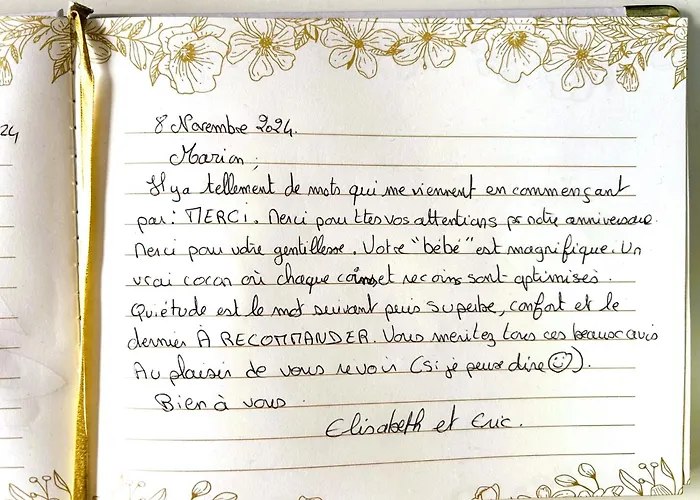 24
8 Novembre 2024.
Marion,
Il y a tellement de mots qui me viennent en commençant
par : MERCI. Merci pour ttes vos attentions pr notre anniversaire.
Merci pour votre gentillesse. Votre "bébé" est magnifique. Un
vrai cocon où chaque coins et recoins sont optimisés.
Quiétude est le mot suivant puis superbe, confort et le
dernier À RECOMMANDER. Vous meritez tous ces beaux avis
Au plaisir de vous revoir (si je peux dire ☺).
Bien à vous.
Elisabeth et Eric.